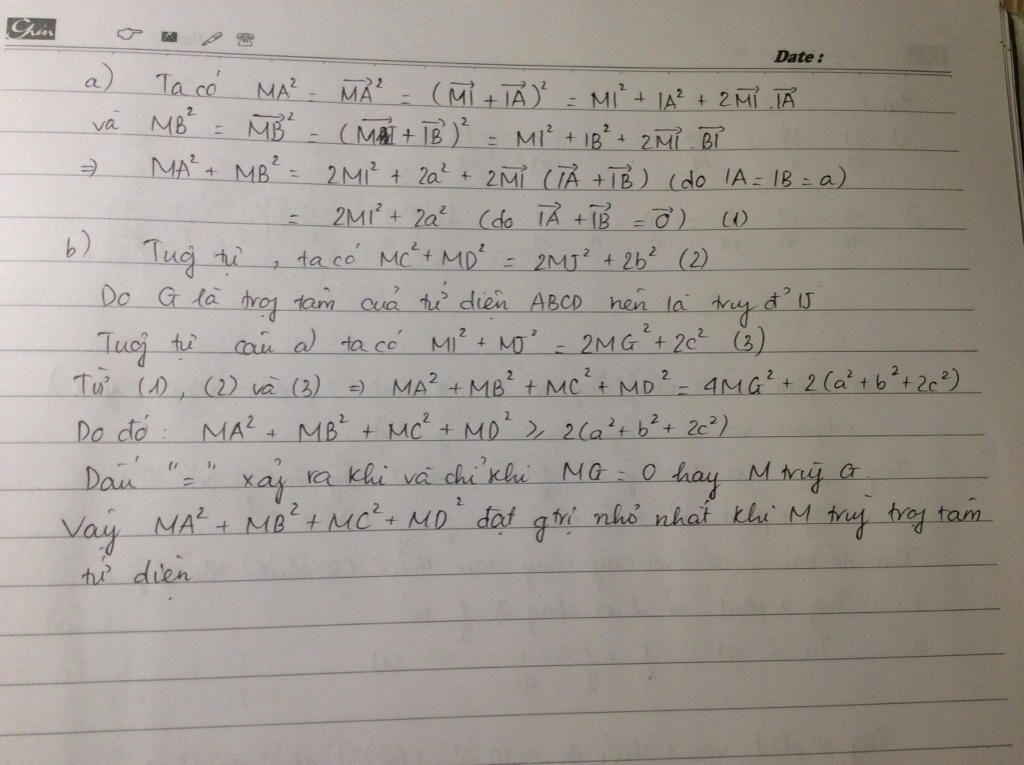 Chin
Date :
a) Ta có MA² = $\overrightarrow{MA}$² = ($\overrightarrow{MI}$ + $\overrightarrow{IA}$)² = MI² + IA² + 2$\overrightarrow{MI}$.$\overrightarrow{IA}$
và MB² = $\overrightarrow{MB}$² = ($\overrightarrow{MI}$ + $\overrightarrow{IB}$)² = MI² + IB² + 2$\overrightarrow{MI}$.$\overrightarrow{BI}$
⇒ MA² + MB² = 2MI² + 2a² + 2$\overrightarrow{MI}$ ($\overrightarrow{IA}$ + $\overrightarrow{IB}$) (do IA = IB = a)
= 2MI² + 2a² (do $\overrightarrow{IA}$ + $\overrightarrow{IB}$ = $\overrightarrow{0}$) (1)
b) Tuơg tự, ta có MC² + MD² = 2MJ² + 2b² (2)
Do G là trọg tâm cuả tứ diện ABCD nên là trug đ' IJ
Tuơg tự câu a) ta có MI² + MJ² = 2MG² + 2c² (3)
Từ (1), (2) và (3) ⇒ MA² + MB² + MC² + MD² = 4MG² + 2(a² + b² + 2c²)
Do đó : MA² + MB² + MC² + MD² ⩾ 2(a² + b² + 2c²)
Dấu "=" xảy ra khi và chỉ khi MG = 0 hay M trùg G.
Vậy MA² + MB² + MC² + MD² đạt gtrị nhỏ nhất khi M trùg trọg tâm
tứ diện